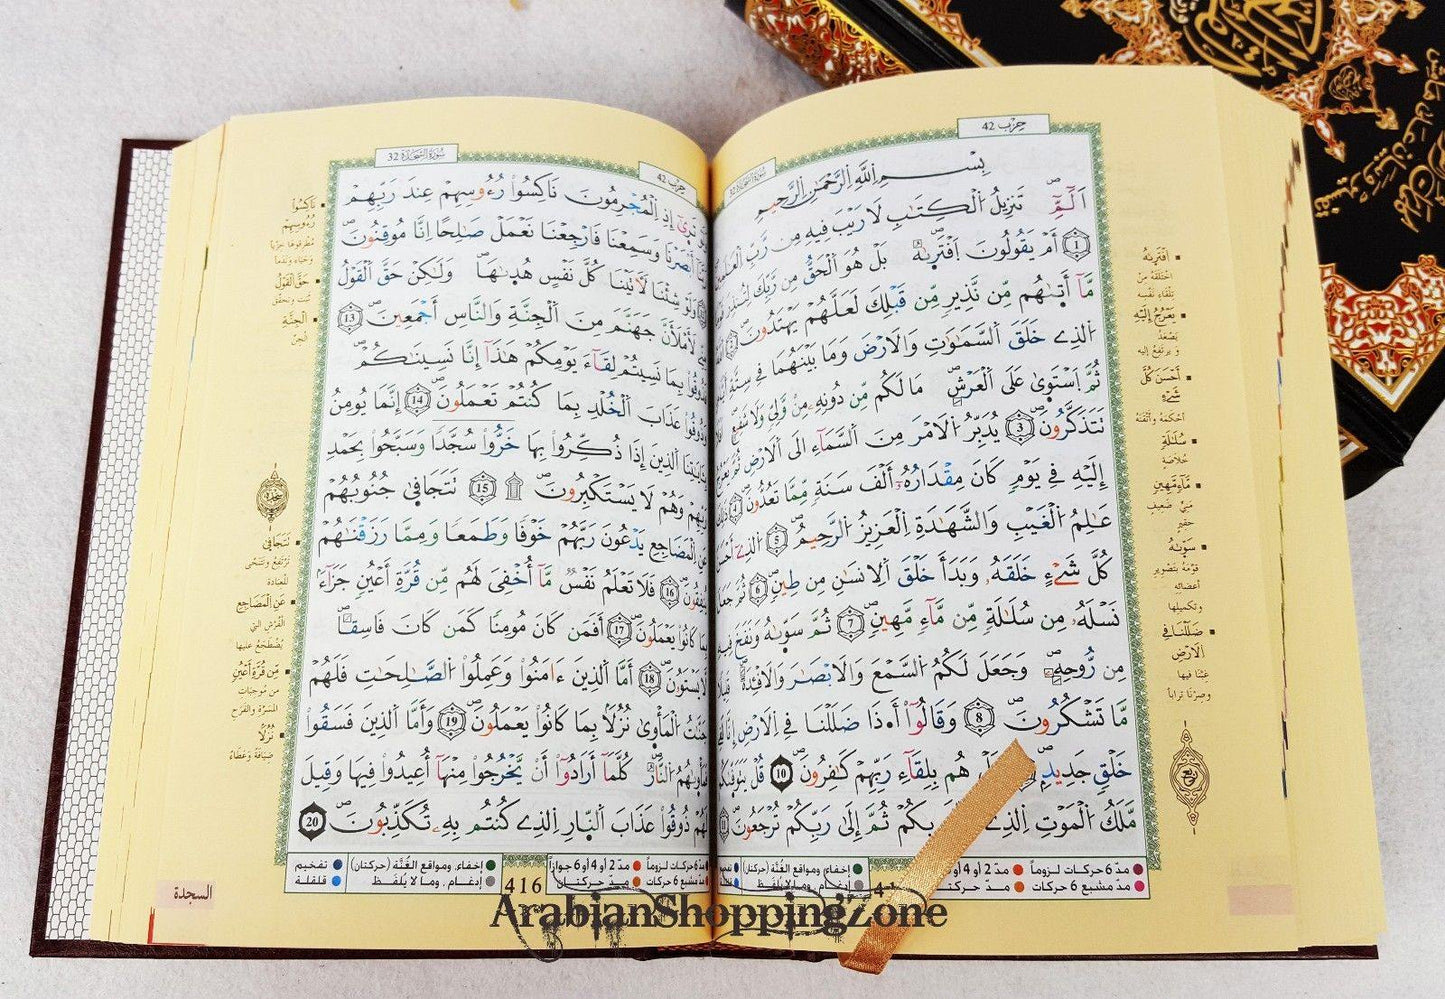 حزب 42
سورة السجدة 32
بِسْمِ اِ۬للَّهِ اِ۬لرَّحْمَٰنِ اِ۬لرَّحِيمِ
أَلَٓمِّٓ تَنزِيلُ اُ۬لْكِتَٰبِ لَا رَيْبَ فِيهِ مِن رَّبِّ
1 أَمْ يَقُولُونَ اَ۪فْتَر۪ىٰهُ بَلْ هُوَ اَ۬لْحَقُّ مِن رَّبِّكَ لِتُنذِرَ
مَّآ أَت۪ىٰهُم مِّن نَّذِيرٖ مِّن قَبْلِكَ لَعَلَّهُمْ يَهْتَدُونَ
اَ۬لذِے خَلَقَ اَ۬لسَّمَٰوَٰتِ وَالَارْضَ وَمَا بَيْنَهُمَا فِے سِتَّةِ
ثُمَّ اَ۪سْتَو۪ىٰ عَلَى اَ۬لْعَرْشِ مَا لَكُم مِّن دُونِهِۦ مِنْ وَّلِيّٖ وَلَا شَفِيعٍ
تَتَذَكَّرُونَ 3 يُدَبِّرُ اُ۬لَامْرَ مِنَ اَ۬لسَّمَآءِ اِلَى اَ۬لَارْضِ ثُمَّ
إِلَيْهِ فِے يَوْمٖ كَانَ مِقْدَارُهُۥٓ أَلْفَ سَنَةٖ مِّمَّا تَعُدُّونَ 4
عَٰلِمُ اُ۬لْغَيْبِ وَالشَّهَٰدَةِ اِ۬لْعَزِيزُ اُ۬لرَّحِيمُ 5 اُ۬لذِےٓ
كُلَّ شَےْءٍ خَلَقَهُۥ وَبَدَأَ خَلْقَ اَ۬لِانسَٰنِ مِن طِينٖ 6 ثُمَّ جَعَلَ
نَسْلَهُۥ مِن سُلَٰلَةٖ مِّن مَّآءٖ مَّهِينٖ 7 ثُمَّ سَوّ۪ىٰهُ وَنَفَخَ فِيهِ
مِن رُّوحِهِۦ وَجَعَلَ لَكُمُ اُ۬لسَّمْعَ وَالَابْصَٰرَ وَالَافْـِٕدَةَ
مَّا تَشْكُرُونَ 8 وَقَالُوٓاْ أَ.ذَا ضَلَلْنَا فِے اِ۬لَارْضِ
خَلْقٖ جَدِيدِۢ هُم بِلِقَآءِ رَبِّهِمْ كَٰفِرُونَ 10 قُلْ يَتَوَفّ۪ىٰكُم
مَّلَكُ اُ۬لْمَوْتِ اِ۬لذِے بِكُمْ ثُمَّ إِلَىٰ رَبِّكُمْ تُرْجَعُونَ 11
افْتَرىٰهُ
اختلقه من
تلقاء نفسه
يَعْرُجُ إِلَيْهِ
يصعد
و يرتفع إليه
أَحْسَنَ كُلَّ
شَيْءٍ
أحكمه وأتقنه
سُلَالَةٍ
خلاصة
مَّآءٍ مَّهِينٍ
منيّ ضعيف
حقير
سَوّىٰهُ
قوّمه بتصوير
أعضائه
وتكميلها
ضَلَلْنَا فِي
الْأَرْضِ
غبنا فيها
وصرنا ترابا
ربع
مدّ 6 حركات لزوماً
مدّ 2 أو 4 أو
مدّ مشبع 6 حركات
مدّ حركتان
إخفاء، ومواقع الغُنَّة (حركتان)
إدغام، وما لا يُلفَظ
سورة السجدة 32
حزب 42
تَرَىٰٓ إِذِ اِ۬لْمُجْرِمُونَ نَاكِسُواْ رُءُوسِهِمْ عِندَ رَبِّهِمْ
أَبْصَرْنَا وَسَمِعْنَا فَارْجِعْنَا نَعْمَلْ صَٰلِحاً اِنَّا مُوقِنُونَ
وَلَوْ شِئْنَا لَأٓتَيْنَا كُلَّ نَفْسٍ هُد۪ىٰهَا وَلَٰكِنْ حَقَّ اَ۬لْقَوْلُ
لَأَمْلَأَنَّ جَهَنَّمَ مِنَ اَ۬لْجِنَّةِ وَالنَّاسِ أَجْمَعِينَ 13
فَذُوقُواْ بِمَا نَسِيتُمْ لِقَآءَ يَوْمِكُمْ هَٰذَآ إِنَّا نَسِينَٰكُمْ
وَذُوقُواْ عَذَابَ اَ۬لْخُلْدِ بِمَا كُنتُمْ تَعْمَلُونَ 14 إِنَّمَا يُومِنُ
بِـَٔايَٰتِنَا اَ۬لذِينَ إِذَا ذُكِّرُواْ بِهَا خَرُّواْ سُجَّداً وَسَبَّحُواْ بِحَمْدِ
رَبِّهِمْ وَهُمْ لَا يَسْتَكْبِرُونَ 15 تَتَجَاف۪ىٰ جُنُوبُهُمْ
عَنِ اِ۬لْمَضَاجِعِ يَدْعُونَ رَبَّهُمْ خَوْفاً وَطَمَعاً وَمِمَّا رَزَقْنَٰهُمْ
يُنفِقُونَ 16 فَلَا تَعْلَمُ نَفْسٌ مَّآ أُخْفِيَ لَهُم مِّن قُرَّةِ أَعْيُنٖ جَزَآءَۢ
بِمَا كَانُواْ يَعْمَلُونَ 17 أَفَمَن كَانَ مُومِناً كَمَن كَانَ فَاسِقاً
لَّا يَسْتَوُۥنَ 18 أَمَّا اَ۬لذِينَ ءَامَنُواْ وَعَمِلُواْ اُ۬لصَّٰلِحَٰتِ فَلَهُمْ
جَنَّٰتُ اُ۬لْمَأْو۪ىٰ نُزُلاَۢ بِمَا كَانُواْ يَعْمَلُونَ 19 وَأَمَّا اَ۬لذِينَ فَسَقُواْ
فَمَأْو۪ىٰهُمُ اُ۬لنَّارُ كُلَّمَآ أَرَادُوٓاْ أَنْ يَّخْرُجُواْ مِنْهَآ أُعِيدُواْ فِيهَا وَقِيلَ
لَهُمْ ذُوقُواْ عَذَابَ اَ۬لنّ۪ارِ اِ۬لذِے كُنتُم بِهِۦ تُكَذِّبُونَ 20
نَاكِسُوا
رُءُوسِهِمْ
مُطرقوها خزياً
وحياء وندما
حَقَّ الْقَوْلُ
ثبت وتحقّق
الْجِنَّةِ
الجنّ
سجدة
تَتَجَافَىٰ
ترتفع وتتنحّى
للعبادة
عَنِ الْمَضَاجِعِ
الفرش التي
يُضطجع عليها
مِّن قُرَّةِ أَعْيُنٍ
من موجبات
المسرّة والفرح
نُزُلاً
ضيافة وعطاء
مدّ 6 حركات لزوماً
مدّ 2 أو 4 أو 6 جوازاً
مدّ مشبع 6 حركات
مدّ حركتان
416
إخفاء، ومواقع الغُنَّة (حركتان)
إدغام، وما لا يُلفَظ
تفخيم
قلقلة
السجدة
ArabianShoppingZone